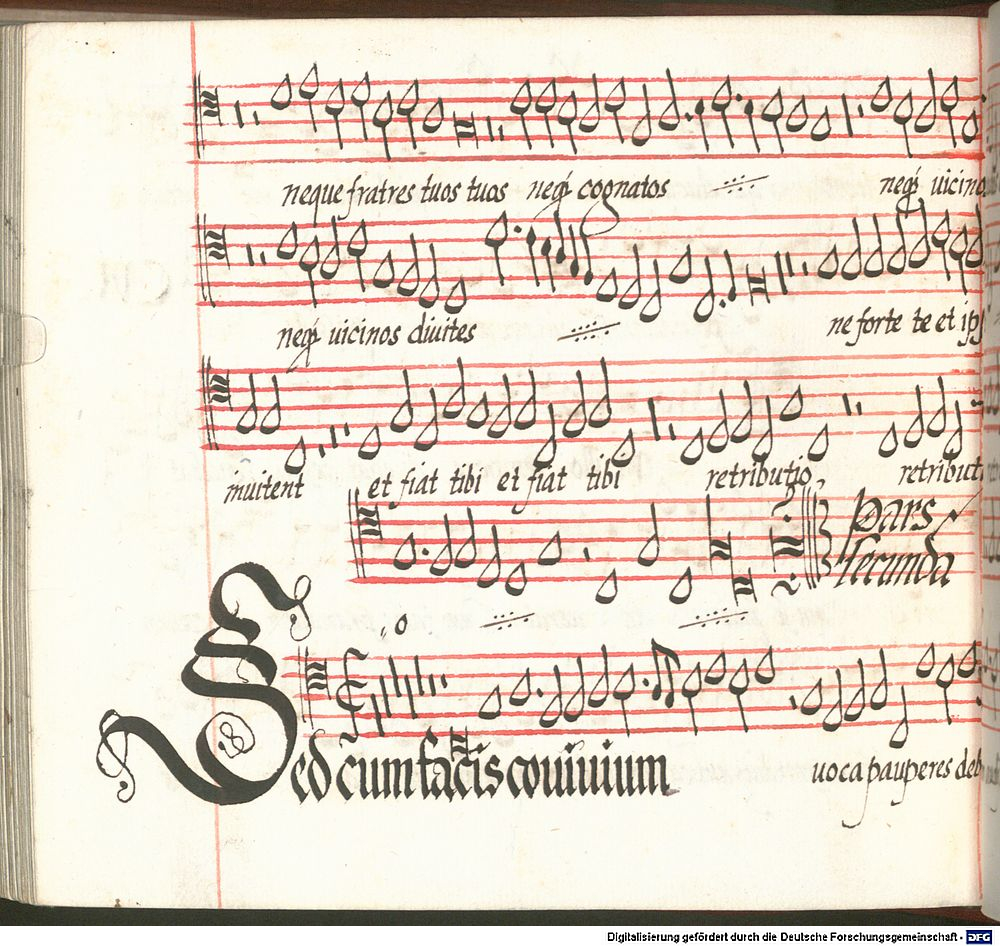 neque fratres tuos tuos neq́ cognatos neq́ uicino
neq́ uicinos diuites ne forte te et ip
inuitent et fiat tibi et fiat tibi retributio, retribut
Pars
secunda
Sed cum facis conuiuium uoca pauperes deb
Digitalisierung gefördert durch die Deutsche Forschungsgemeinschaft - DFG